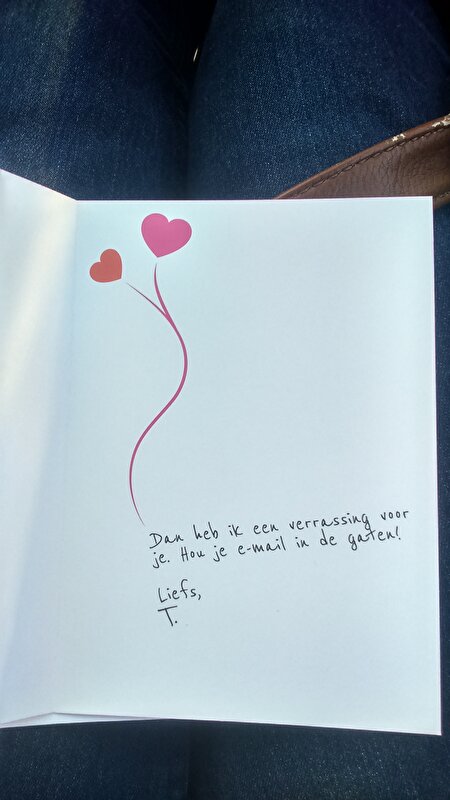 Dan heb ik een verrassing voor
je. Hou je e-mail in de gaten!
Liefs,
T.